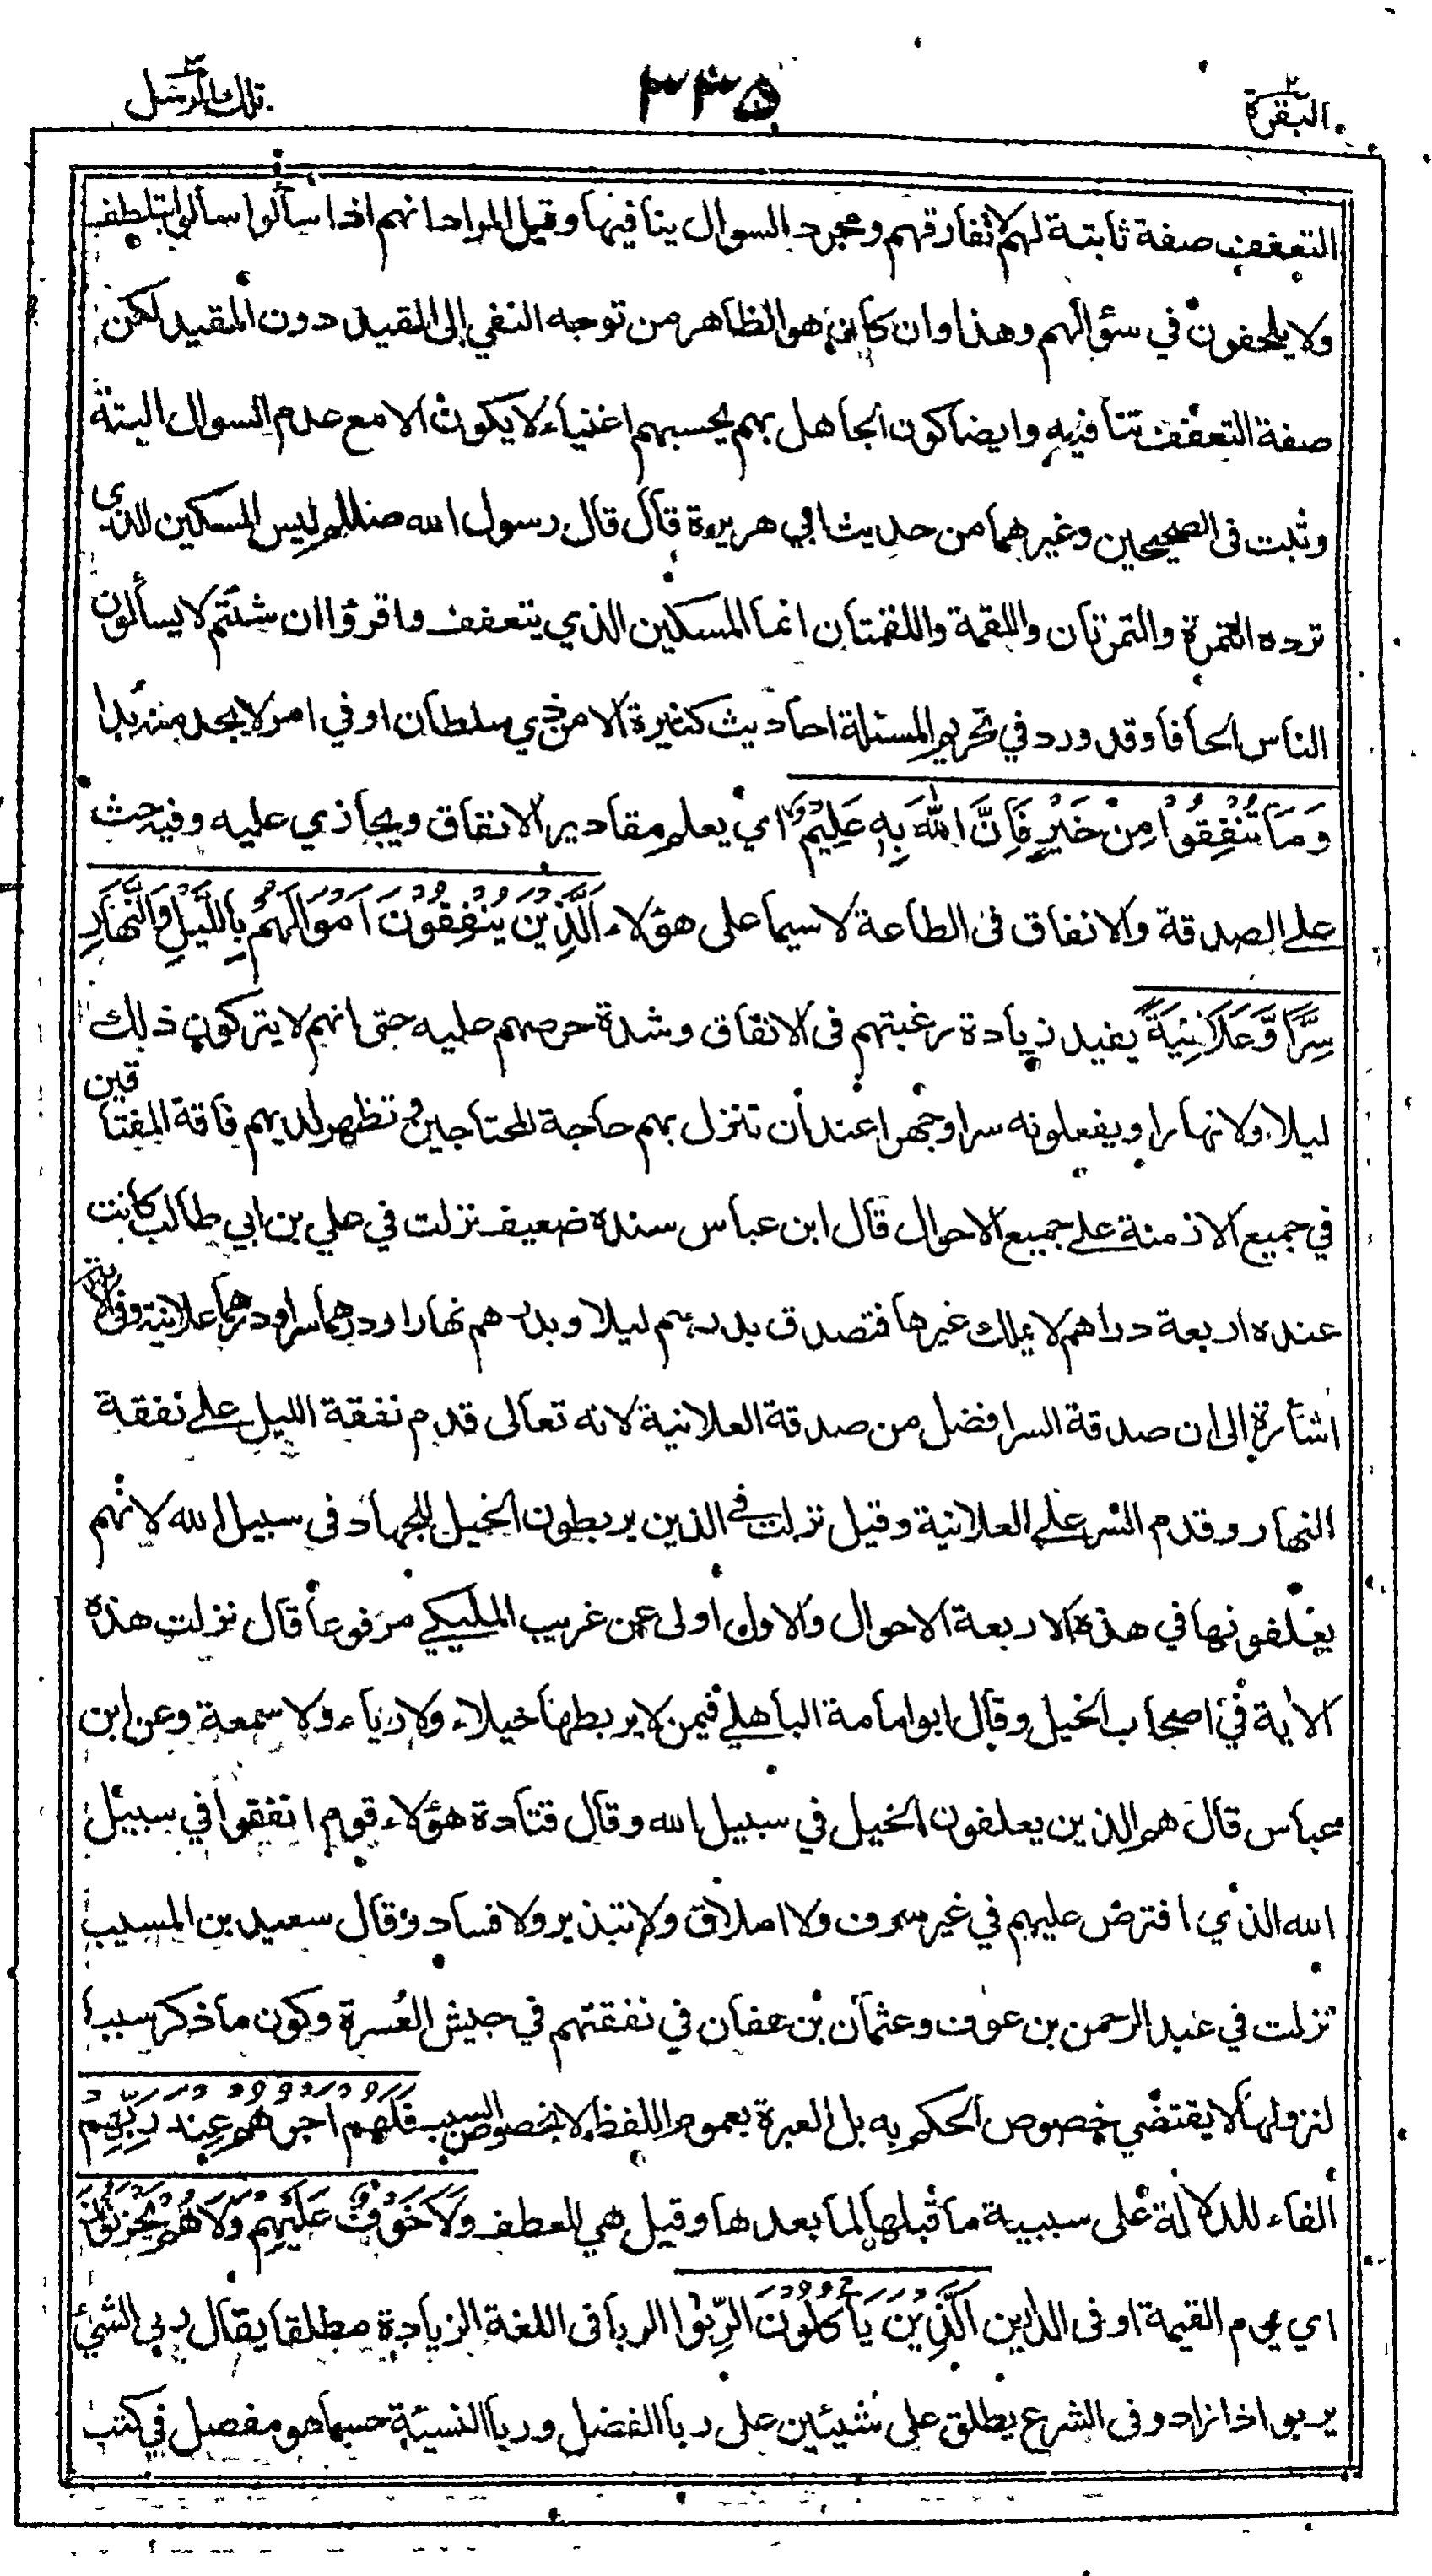 البقرة ٢
٣٣٥
تلك الرسل ٣
التعفف صفة ثابتة لهم لا تفارقهم ومجرد السوال ينافيها وقيل المراد انهم اذا سألوا سألوا بتلطف
ولا يلحفون في سؤالهم وهذا وان كان هو الظاهر من توجه النفي إلى القيد دون المقيد لكن
صفة التعفف تنافيه وايضا كون الجاهل بهم يحسبهم اغنياء لا يكون الا مع عدم السوال البتة
وثبت فى الصحيحين وغيرهما من حديث ابي هريرة قال قال رسول الله صللم ليس المسكين الذي
ترده التمرة والتمرتان واللقمة واللقمتان انما المسكين الذي يتعفف واقرؤا ان شئتم لا يسألون
الناس الحافا وقد ورد في تحريم المسئلة احاديث كثيرة الا من ذي سلطان او في امر لا يجد منه بدا
وَمَا تُنْفِقُوْا مِنْ خَيْرٍ فَاِنَّ اللّٰهَ بِهٖ عَلِيْمٌ اي يعلم مقادير الانفاق ويجازي عليه وفيه حث
على الصدقة والانفاق فى الطاعة لا سيما على هؤلاء اَلَّذِيْنَ يُنْفِقُوْنَ اَمْوَالَهُمْ بِاللَّيْلِ وَالنَّهَارِ
سِرًّا وَّعَلَانِيَةً يفيد زيادة رغبتهم فى الانفاق وشدة حرصهم عليه حتى انهم لا يتركون ذلك
ليلا ولا نهارا ويفعلونه سرا وجهرا عند أن تنزل بهم حاجة المحتاجين وتظهر لديهم فاقة المفتاقين
في جميع الازمنة على جميع الاحوال قال ابن عباس سنده ضعيف نزلت في علي بن ابي طالب كانت
عنده اربعة دراهم لا يملك غيرها فتصدق بدرهم ليلا وبدرهم نهارا ودرهما سرا ودرهما علانية وفى الاية
اشارة إلى ان صدقة السر افضل من صدقة العلانية لانه تعالى قدم نفقة الليل على نفقة
النهار وقدم السر على العلانية وقيل نزلت في الذين يربطون الخيل للجهاد فى سبيل الله لانهم
يعلفونها في هذه الاربعة الاحوال والاول اولى عن غريب المليكي مرفوعا قال نزلت هذه
الاية في اصحاب الخيل وقال ابوامامة الباهلي فيمن لا يربطها خيلاء ولا رياء ولا سمعة وعن ابن
عباس قال هم الذين يعلفون الخيل في سبيل الله وقال قتادة هؤلاء قوم انفقوا في سبيل
الله الذي افترض عليهم في غير سرف ولا املاق ولا تبذير ولا فساد وقال سعيد بن المسيب
نزلت في عبد الرحمن بن عوف وعثمان بن عفان في نفقتهم في جيش العُسرة وكون ما ذكر سببا
لنزولها لا يقتضي خصوص الحكم به بل العبرة بعموم اللفظ لا بخصوص السبب فَلَهُمْ اَجْرُهُمْ عِنْدَ رَبِّهِمْ
الفاء للدلالة على سببية ما قبلها لما بعدها وقيل هي للعطف وَلَا خَوْفٌ عَلَيْهِمْ وَلَا هُمْ يَحْزَنُوْنَ
اي يوم القيمة او فى الدارين اَلَّذِيْنَ يَأْكُلُوْنَ الرِّبٰوا الربا فى اللغة الزيادة مطلقا يقال ربى الشئ
يربو اذا زاد وفى الشرع يطلق على شيئين على ربا الفضل وربا النسيئة حسبما هو مفصل في كتب